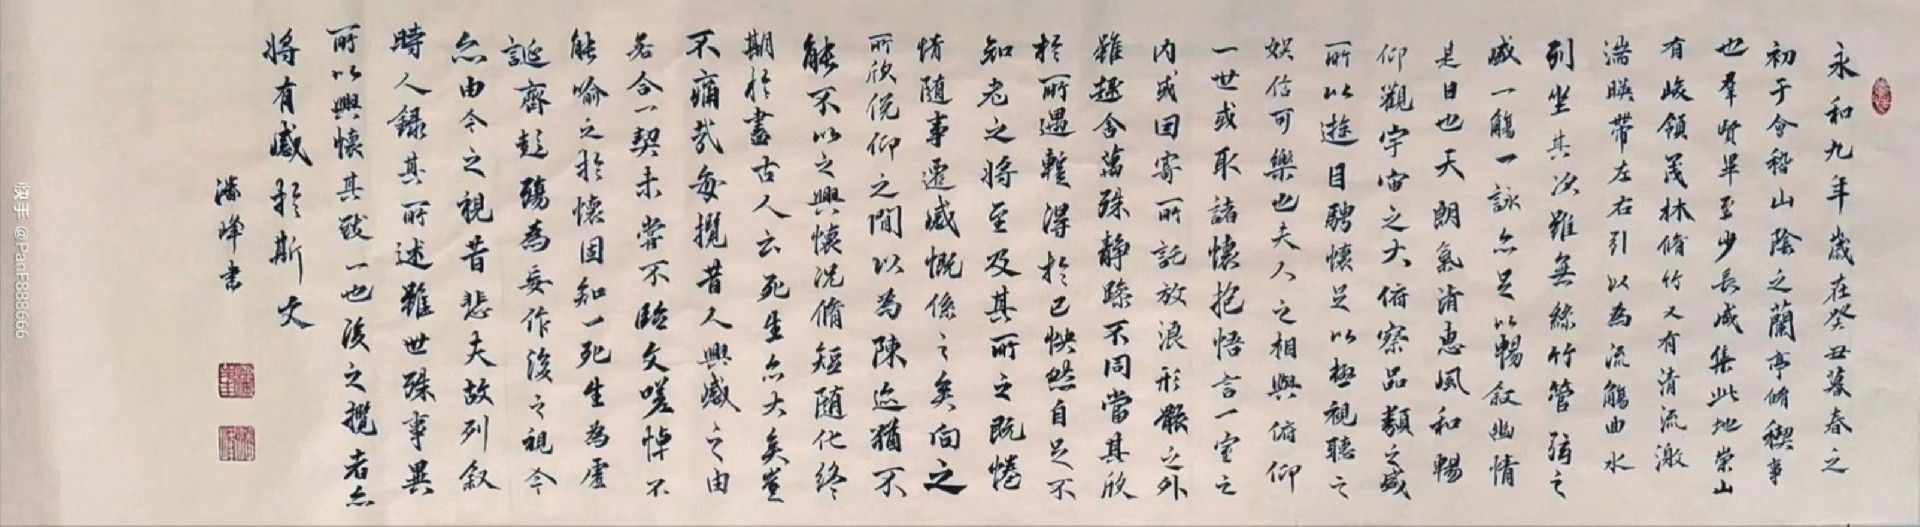 永和九年歲在癸丑暮春之
初于會稽山陰之蘭亭脩稧事
也羣賢畢至少長咸集此地崇山
有峻領茂林脩竹又有清流激
湍暎帶左右引以為流觴曲水
列坐其次雖無絲竹管弦之
盛一觴一詠亦足以暢叙幽情
是日也天朗氣清惠風和暢
仰觀宇宙之大俯察品類之盛
所以遊目騁懷足以極視聽之
娛信可樂也夫人之相與俯仰
一世或取諸懷抱悟言一室之
內或因寄所託放浪形骸之外
雖趣舍萬殊静躁不同當其欣
於所遇暫得於己怏然自足不
知老之將至及其所之既惓
情隨事遷感慨係之矣向之
所欣俛仰之間以為陳迹猶不
能不以之興懷況脩短隨化終
期於盡古人云死生亦大矣豈
不痛哉每攬昔人興感之由
若合一契未嘗不臨文嗟悼不
能喻之於懷固知一死生為虛
誕齊彭殤為妄作後之視今
亦由今之視昔悲夫故列叙
時人錄其所述雖世殊事異
所以興懷其致一也後之攬者亦
將有感於斯文
潘峰書
快手 @PanF888666